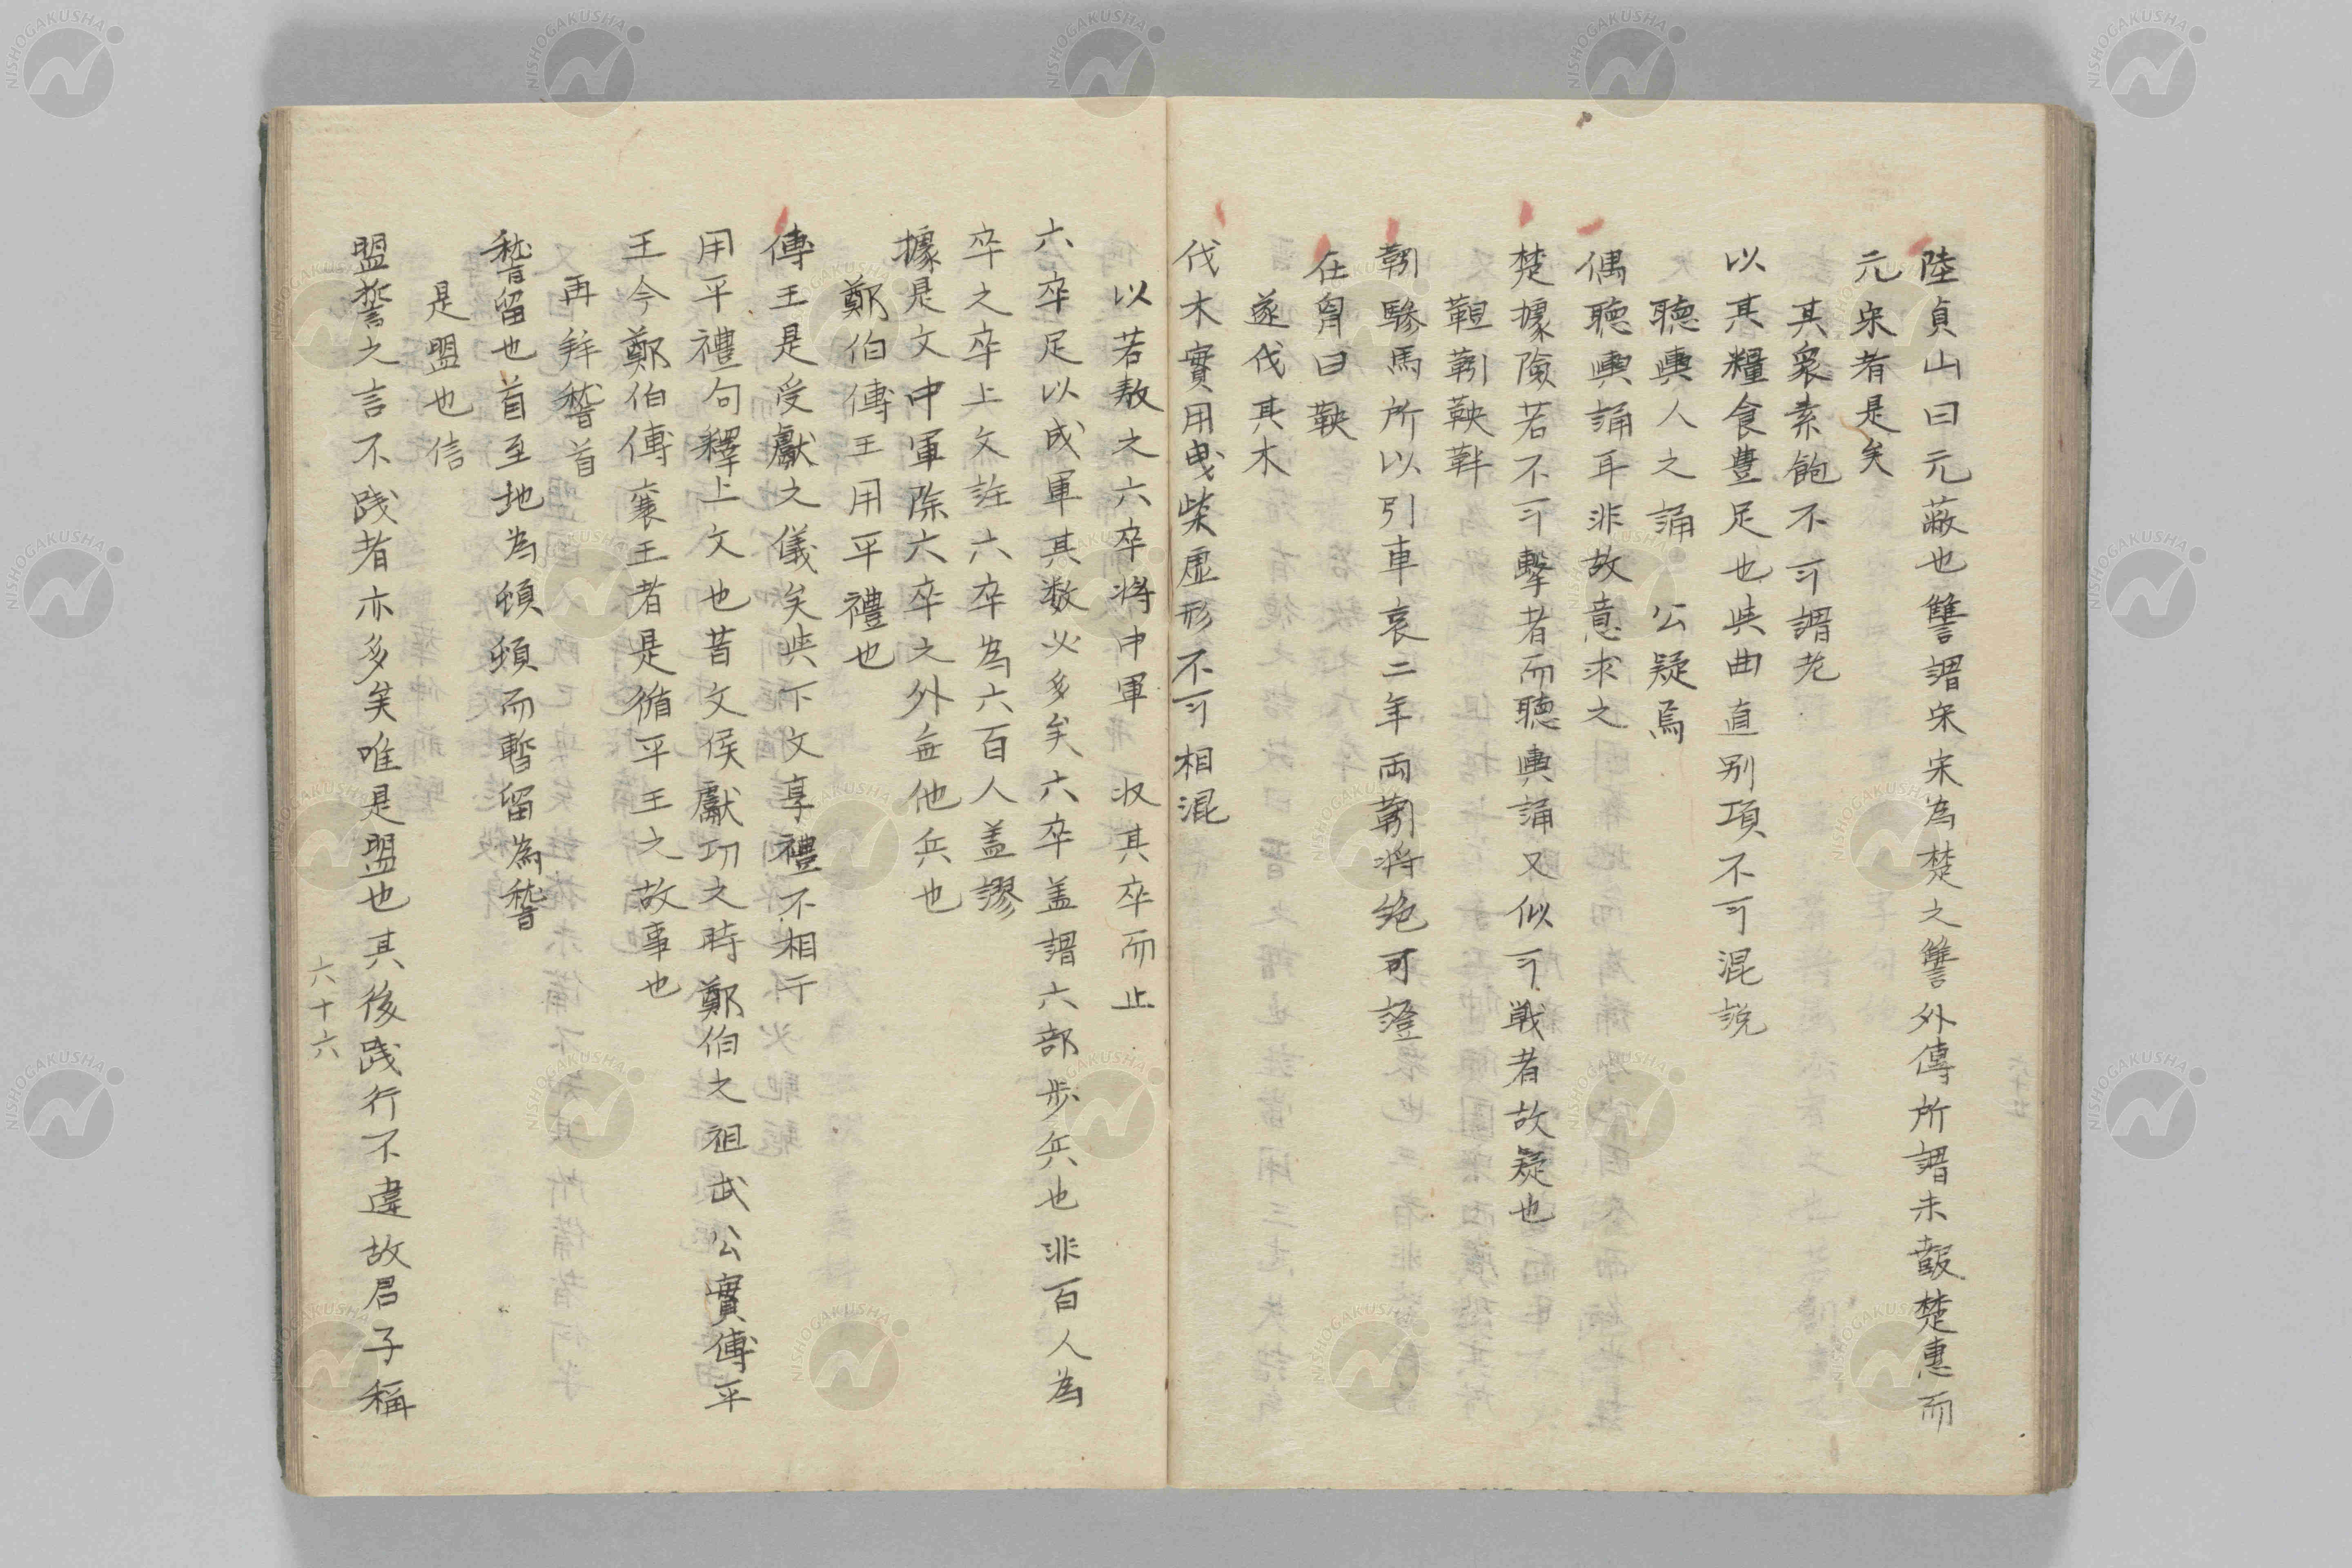 陸貞山曰元蔽也讐謂宋宋為楚之讐外傳所謂未報楚惠而
元宋者是矣
其衆素飽不可謂老
以其糧食豊足也與曲直別項不可混説
聴輿人之誦　公疑焉
偶聴輿誦耳非故意求之
楚據險若不可擊者而聴輿誦又似可戦者故疑也
䩞靷鞅靽
靷驂馬所以引車哀二年両靷将絶可證
在胷曰鞅
遂伐其木
伐木實用曳柴虚形不可相混
以若敖之六卒将中軍　収其卒而止
六卒足以成軍其数必多矣六卒盖謂六部歩兵也非百人為
卒之卒上文註六卒為六百人盖謬
據是文中軍除六卒之外無他兵也
鄭伯傅王用平禮也
傅王是受獻之儀矣與下文享禮不相干
用平禮句釋上文也昔文侯獻功之時鄭伯之祖武公實傅平
王今鄭伯傅襄王者是循平王之故事也
再拜稽首
稽留也首至地為頓頓而暫留為稽
是盟也信
盟誓之言不践者亦多矣唯是盟也其後践行不違故君子稱
六十六
NISHOGAKUSHA